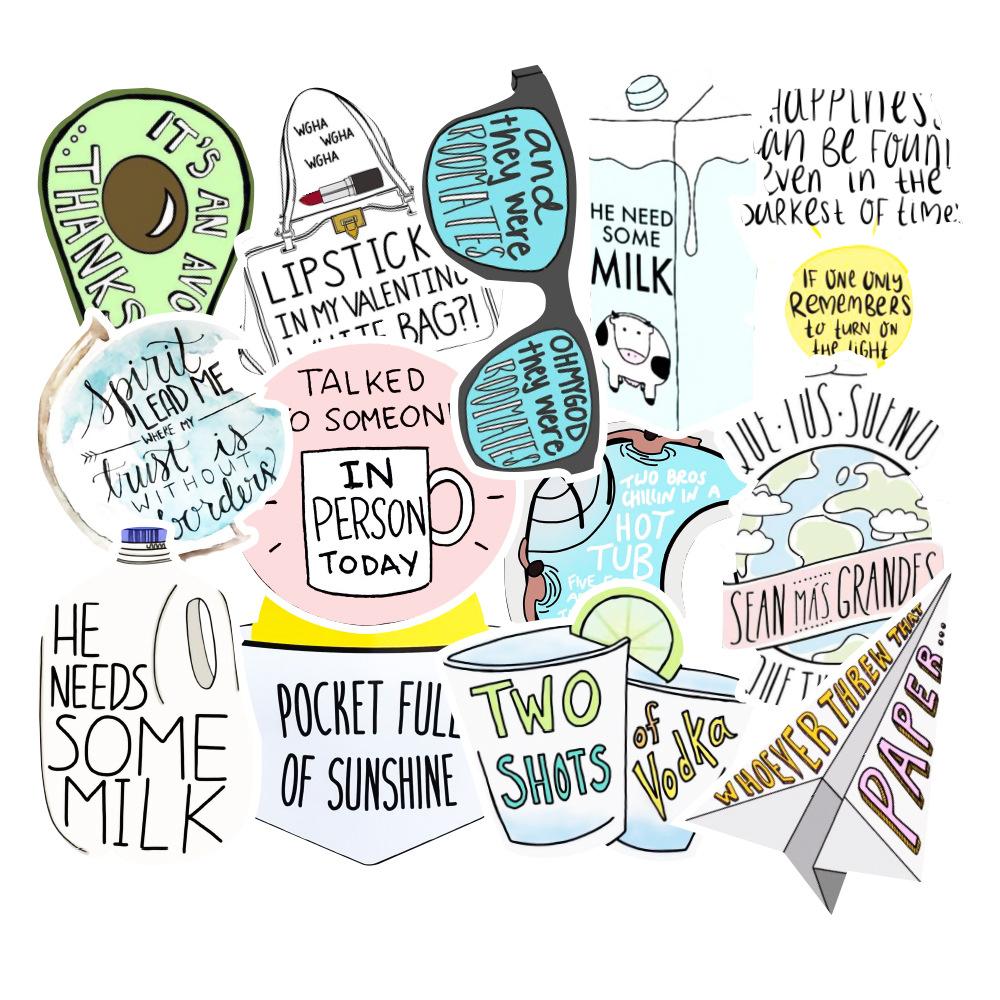 IT'S AN AVO
...THANKS
WGHA
WGHA
WGHA
LIPSTICK
IN MY VALENTINO
WHITE BAG?!
and
they were
ROOMATES
OHMYGOD
they were
ROOMATES
HE NEED
SOME
MILK
HAPPINESS
CAN BE FOUND
EVEN IN THE
DARKEST OF TIMES
IF ONE ONLY
REMEMBERS
to turn on
the light
spirit
LEAD ME
WHERE MY
trust is
WITHOUT
borders
TALKED
TO SOMEONE
IN
PERSON
TODAY
TWO BROS
CHILLIN IN A
HOT
TUB
FIVE
QUE·TUS·SUEÑOS
SEAN MÁS GRANDES
HE
NEEDS
SOME
MILK
POCKET FULL
OF SUNSHINE
TWO
SHOTS
of
Vodka
WHOEVER THREW THAT
PAPER...